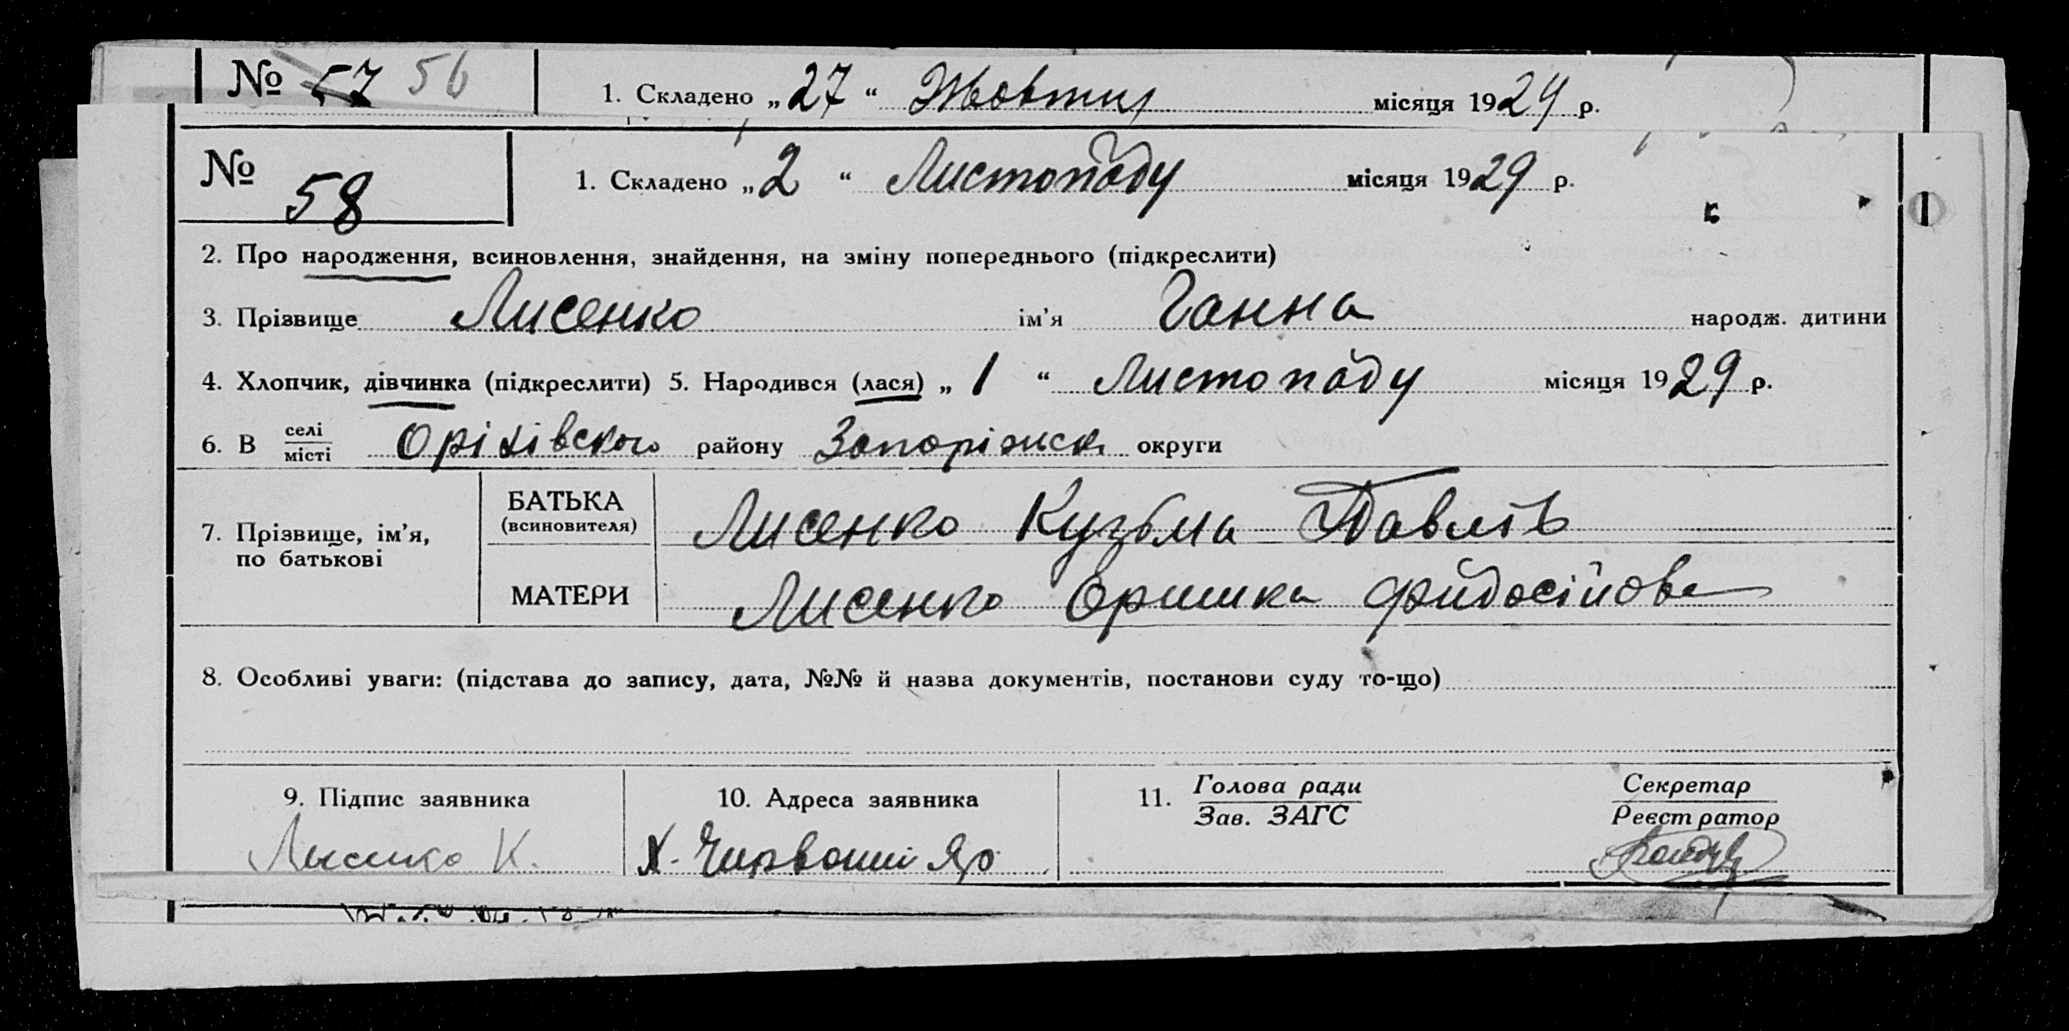 № 57 56 1. Складено „27“ Жовтня місяця 1929 р.
№ 58 1. Складено „2“ Листопаду місяця 1929 р.
2. Про народження, всиновлення, знайдення, на зміну попереднього (підкреслити)
3. Прізвище Лисенко ім’я Ганна народж. дитини
4. Хлопчик, дівчинка (підкреслити) 5. Народився (лася) „1“ Листопаду місяця 1929 р.
6. В селі місті Оріхівского району Запоріжськ округи
7. Прізвище, ім’я, по батькові
БАТЬКА (всиновителя) Лисенко Кузьма Павлів
МАТЕРИ Лисенко Оришка Фидосійова
8. Особливі уваги: (підстава до запису, дата, №№ й назва документів, постанови суду то-що)
9. Підпис заявника 10. Адреса заявника 11. Голова ради Зав. ЗАГС Секретар Реєстратор
Лысенко К. Х. Червоний Яр